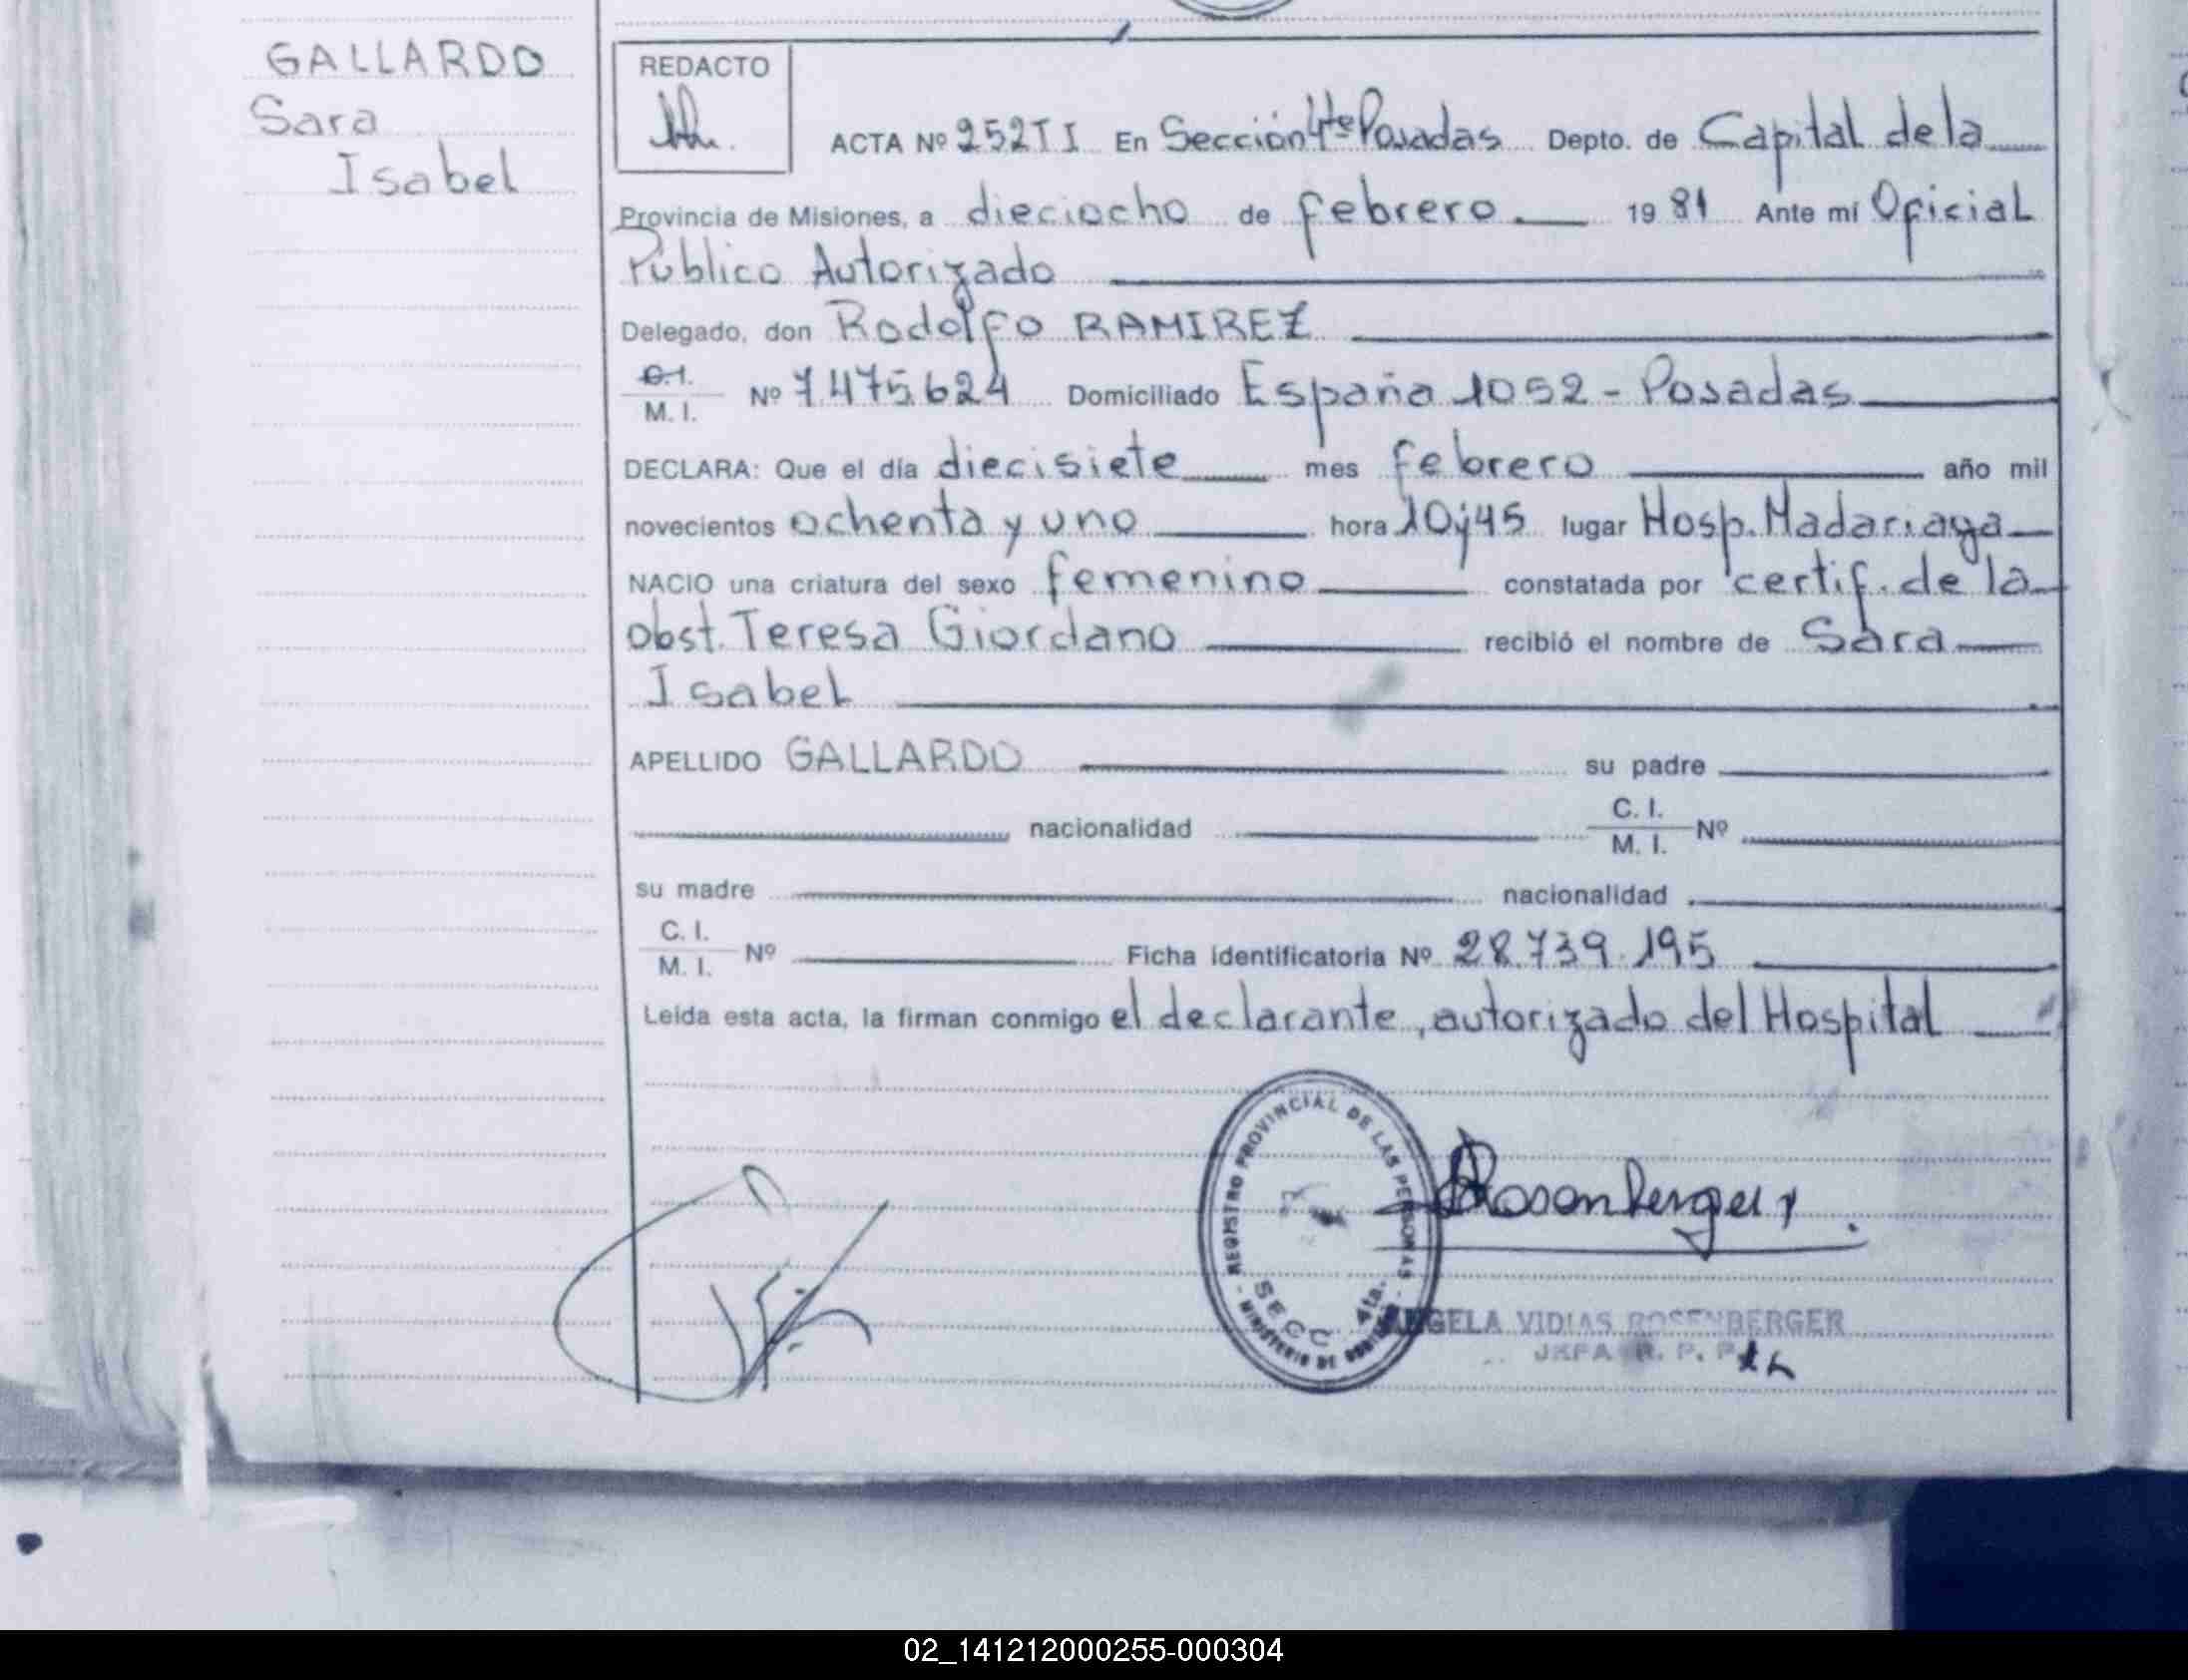 GALLARDO
Sara
Isabel
REDACTO
ACTA Nº 252 T I En Sección 4ta Posadas Depto. de Capital de la
Provincia de Misiones, a dieciocho de febrero 19 81 Ante mí Oficial
Público Autorizado
Delegado, don Rodolfo RAMIREZ
C.I.
M. I. Nº 7475624 Domiciliado España 1052 - Posadas
DECLARA: Que el día diecisiete mes febrero año mil
novecientos ochenta y uno hora 10y45 lugar Hosp. Madariaga
NACIO una criatura del sexo femenino constatada por certif. de la
obst. Teresa Giordano recibió el nombre de Sara
Isabel
APELLIDO GALLARDO su padre
nacionalidad C. I.
M. I. Nº
su madre nacionalidad
C. I.
M. I. Nº Ficha identificatoria Nº 28.739.195
Leída esta acta, la firman conmigo el declarante, autorizado del Hospital
REGISTRO PROVINCIAL DE LAS PERSONAS
SECC. 4ta.
- MINISTERIO DE GOBIERNO -
Rosenberger
ANGELA VIDIAS ROSENBERGER
JEFA R. P. P.
02_141212000255-000304